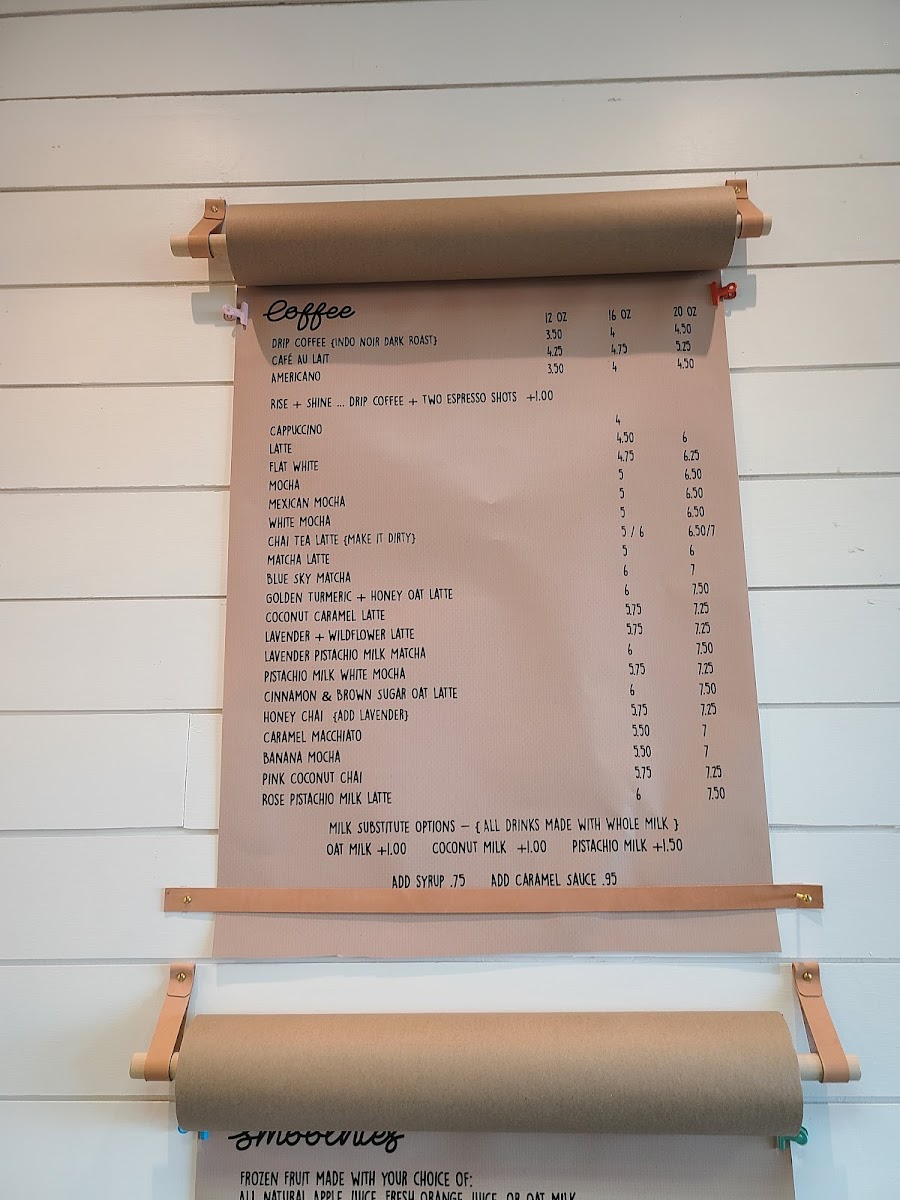 Coffee 12 OZ 16 OZ 20 OZ
DRIP COFFEE {INDO NOIR DARK ROAST} 3.50 4 4.50
CAFÉ AU LAIT 4.25 4.75 5.25
AMERICANO 3.50 4 4.50
RISE + SHINE ... DRIP COFFEE + TWO ESPRESSO SHOTS +1.00
CAPPUCCINO 4
LATTE 4.50 6
FLAT WHITE 4.75 6.25
MOCHA 5 6.50
MEXICAN MOCHA 5 6.50
WHITE MOCHA 5 6.50
CHAI TEA LATTE {MAKE IT DIRTY} 5 / 6 6.50/7
MATCHA LATTE 5 6
BLUE SKY MATCHA 6 7
GOLDEN TURMERIC + HONEY OAT LATTE 6 7.50
COCONUT CARAMEL LATTE 5.75 7.25
LAVENDER + WILDFLOWER LATTE 5.75 7.25
LAVENDER PISTACHIO MILK MATCHA 6 7.50
PISTACHIO MILK WHITE MOCHA 5.75 7.25
CINNAMON & BROWN SUGAR OAT LATTE 6 7.50
HONEY CHAI {ADD LAVENDER} 5.75 7.25
CARAMEL MACCHIATO 5.50 7
BANANA MOCHA 5.50 7
PINK COCONUT CHAI 5.75 7.25
ROSE PISTACHIO MILK LATTE 6 7.50
MILK SUBSTITUTE OPTIONS – { ALL DRINKS MADE WITH WHOLE MILK }
OAT MILK +1.00 COCONUT MILK +1.00 PISTACHIO MILK +1.50
ADD SYRUP .75 ADD CARAMEL SAUCE .95
smoothies
FROZEN FRUIT MADE WITH YOUR CHOICE OF:
ALL NATURAL APPLE JUICE, FRESH ORANGE JUICE, OR OAT MILK